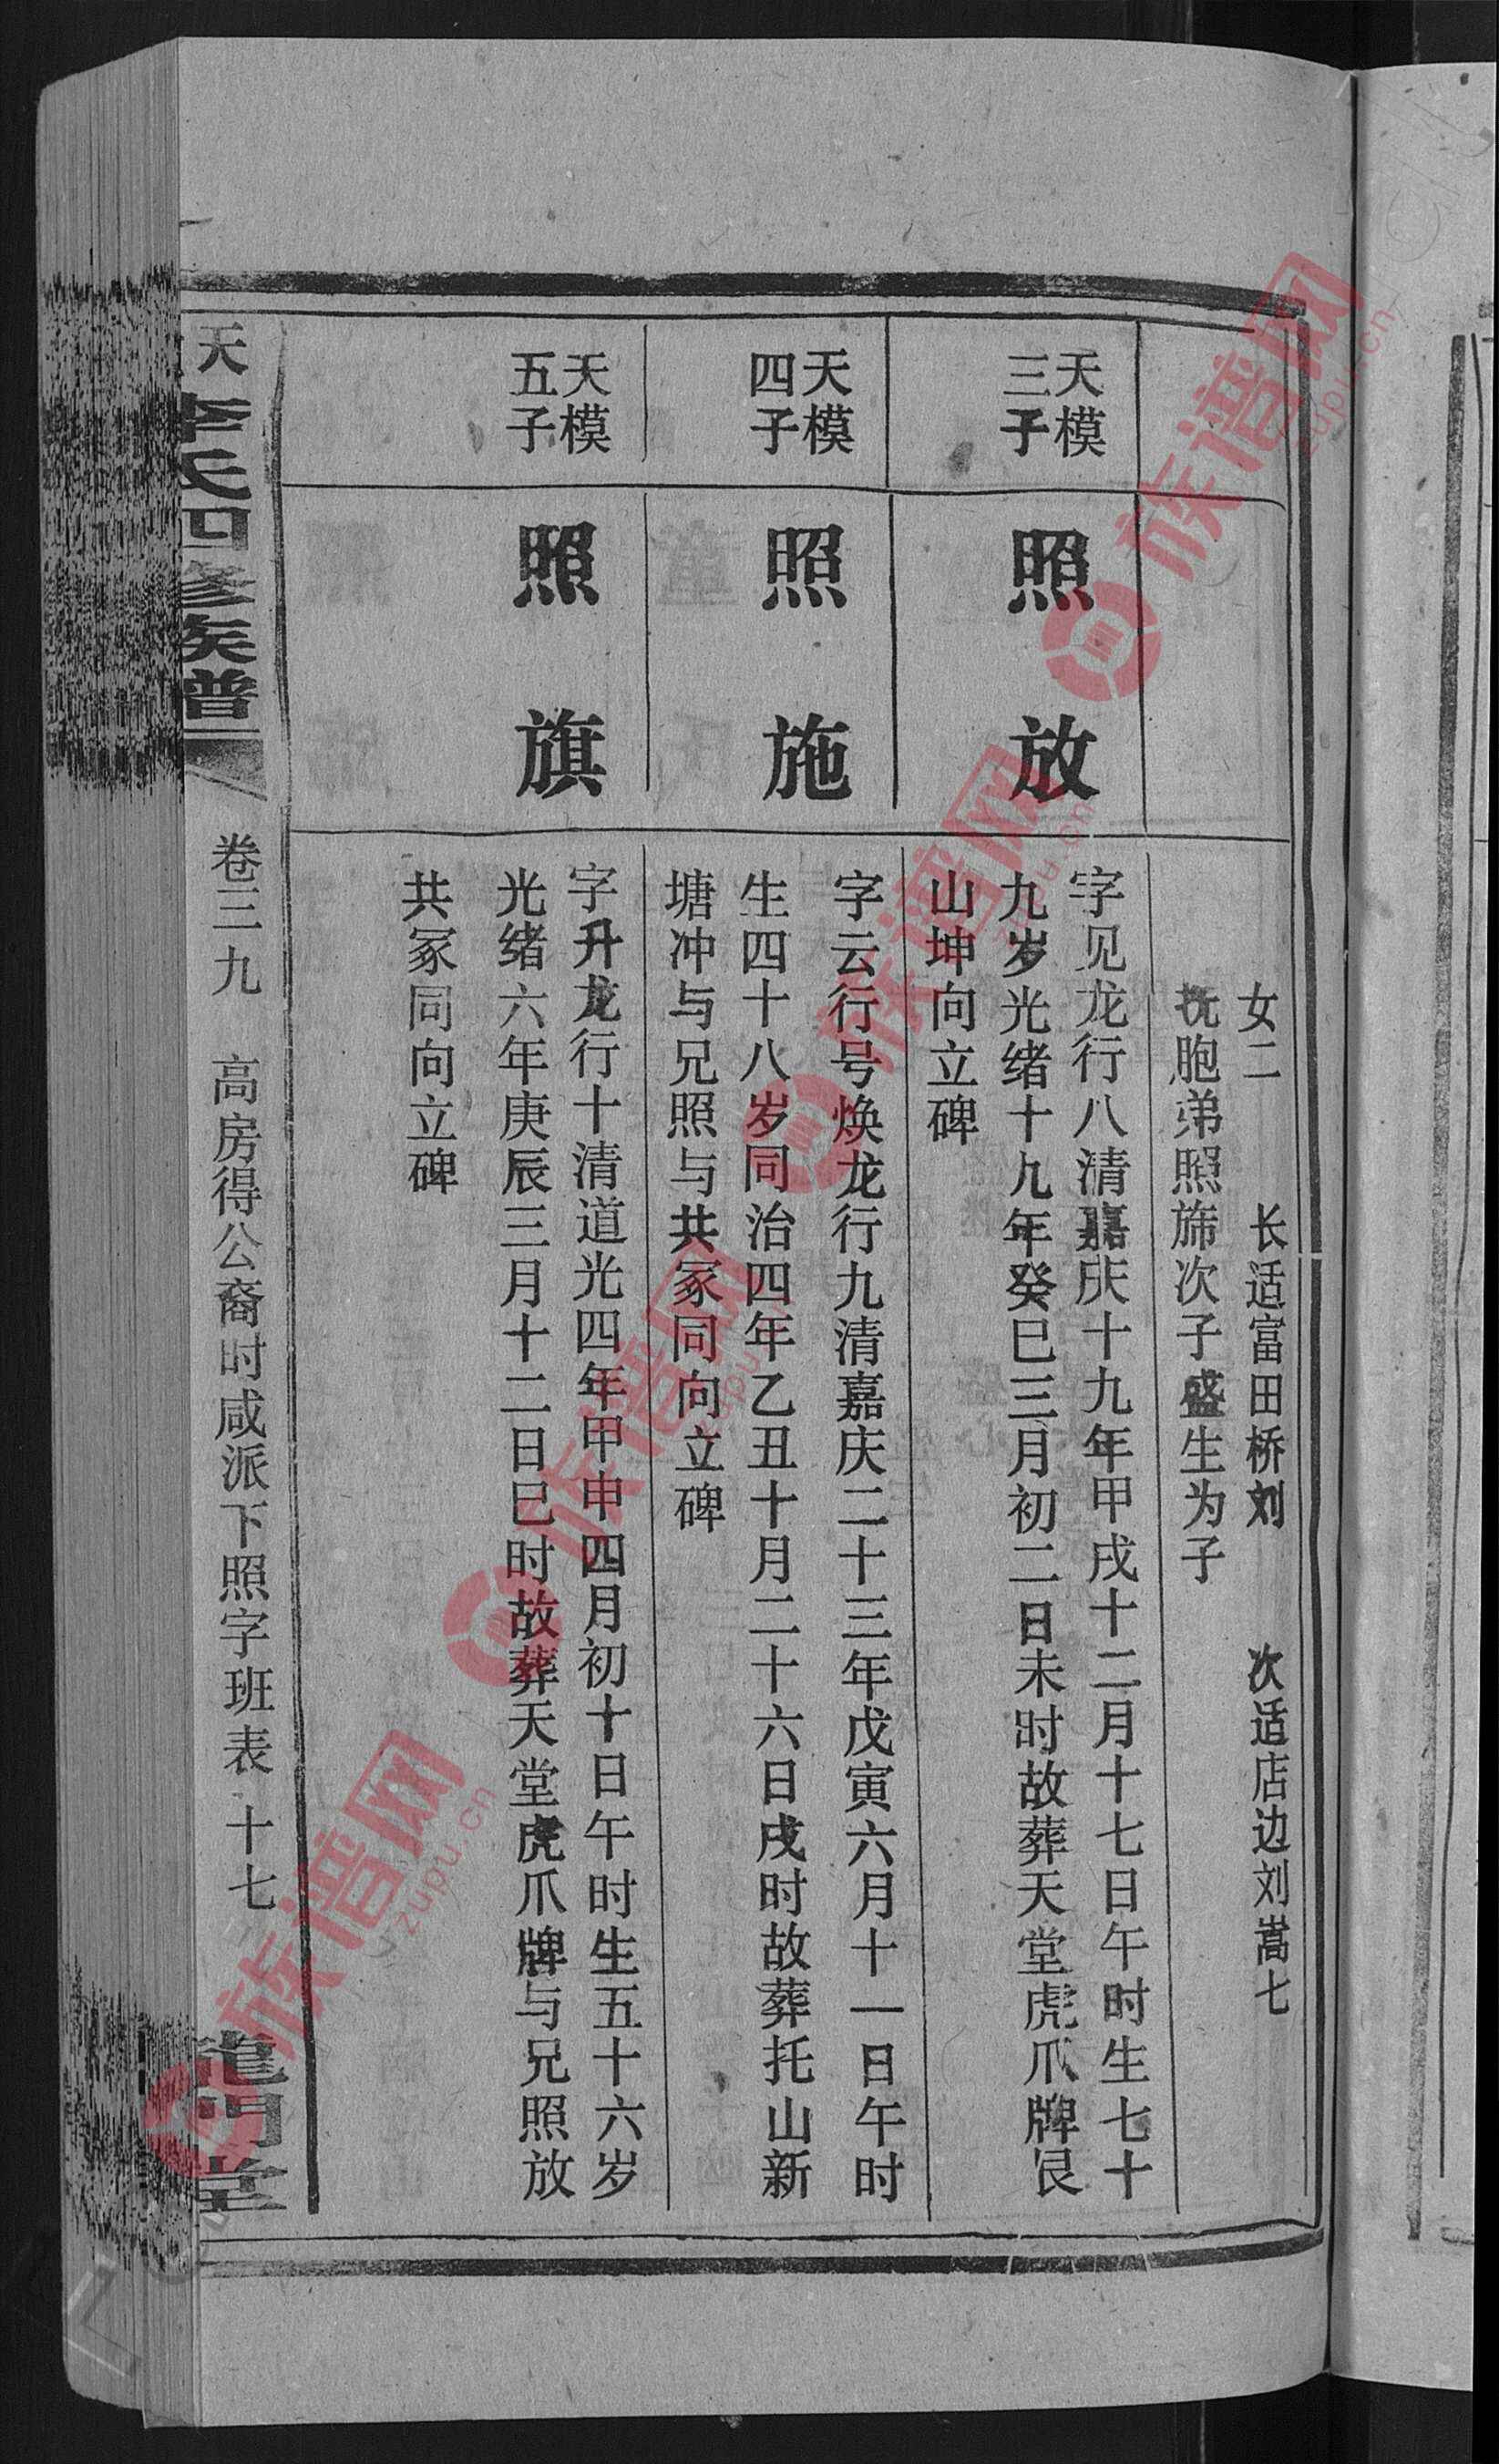 女二　长适富田桥刘　次适店边刘嵩七
抚胞弟照旆次子盛生为子
天模
三子
照放
字见龙行八清嘉庆十九年甲戌十二月十七日午时生七十
九岁光绪十九年癸巳三月初二日未时故葬天堂虎爪牌艮
山坤向立碑
天模
四子
照施
字云行号焕龙行九清嘉庆二十三年戊寅六月十一日午时
生四十八岁同治四年乙丑十月二十六日戌时故葬托山新
塘冲与兄照与共冢同向立碑
天模
五子
照旗
字升龙行十清道光四年甲申四月初十日午时生五十六岁
光绪六年庚辰三月十二日巳时故葬天堂虎爪牌与兄照放
共冢同向立碑
天
李氏四修族谱
卷三九　高房得公裔时咸派下照字班表　十七
龍門堂
族谱网
zupu.cn
族谱网
zupu.cn
族谱网
zupu.cn
族谱网
zupu.cn